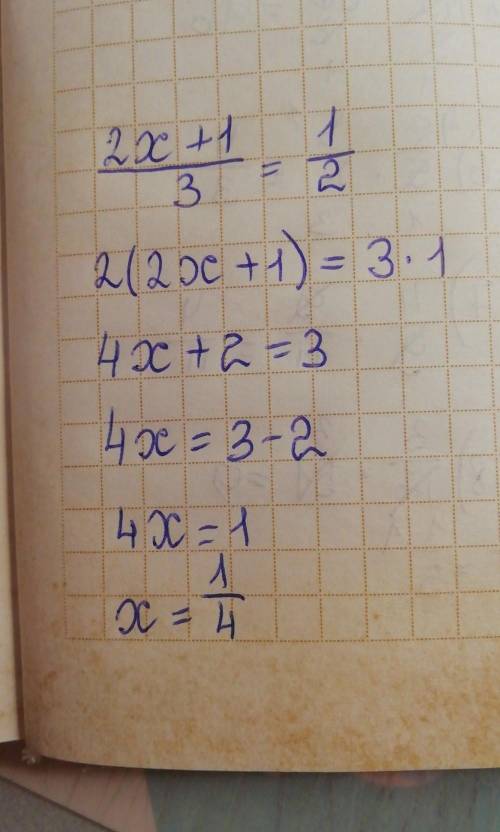 (2x+1)/3 = 1/2
2(2x+1) = 3·1
4x+2=3
4x=3-2
4x=1
x=1/4